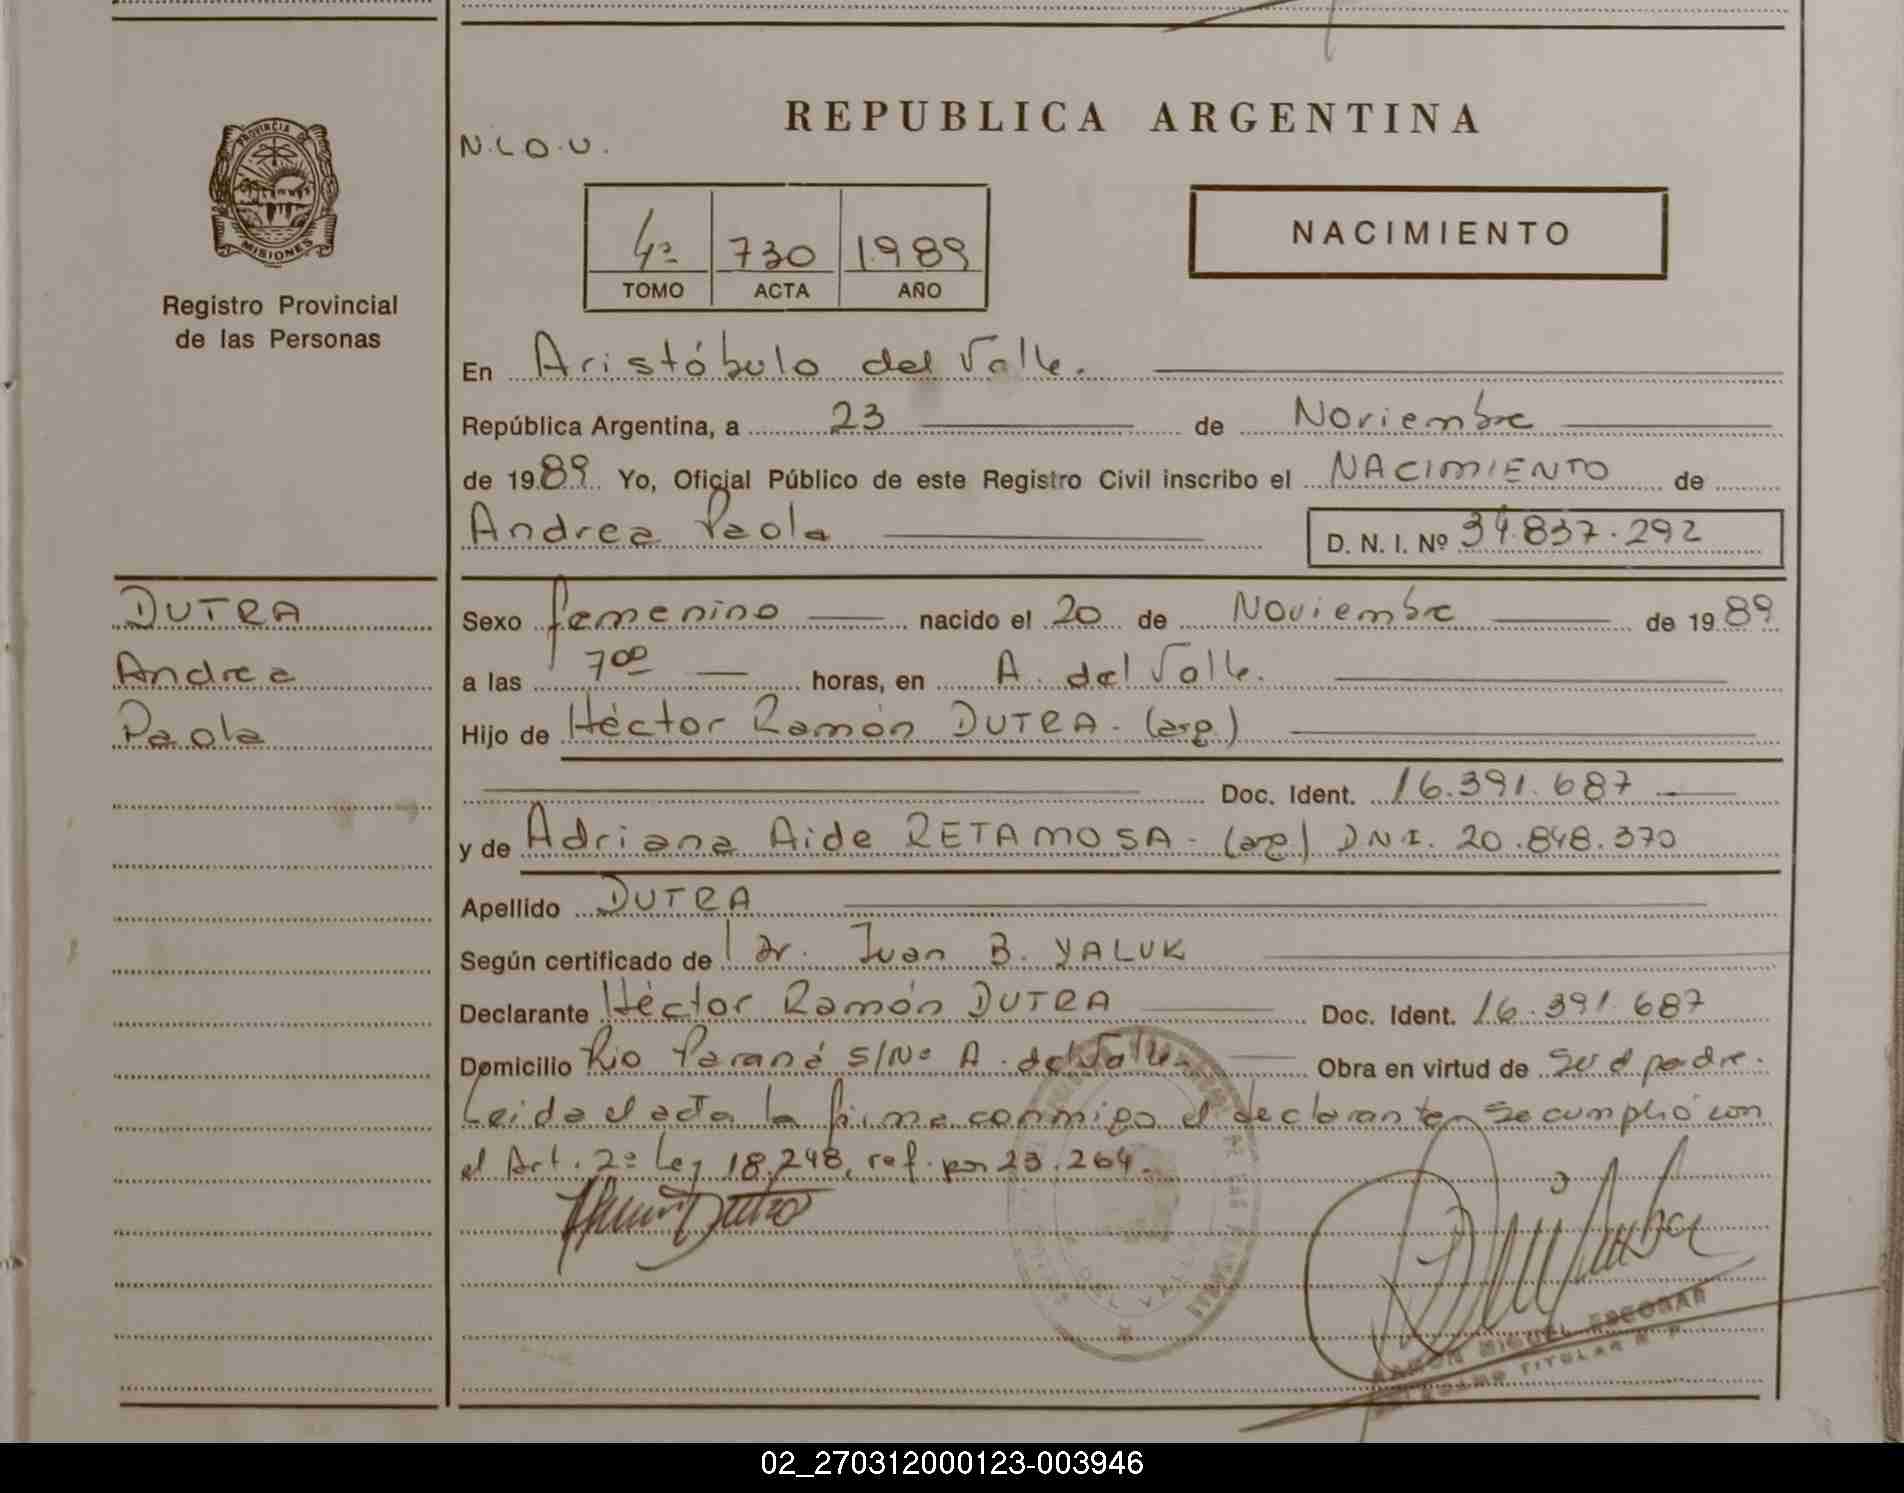 PROVINCIA DE
MISIONES
Registro Provincial
de las Personas
REPUBLICA ARGENTINA
N.L.O.U.
NACIMIENTO
4º 730 1989
TOMO ACTA AÑO
En Aristóbulo del Valle.
República Argentina, a 23 de Noviembre
de 1989 Yo, Oficial Público de este Registro Civil inscribo el NACIMIENTO de
Andrea Paola D. N. I. Nº 34.837.292
DUTRA
Andrea
Paola
Sexo femenino nacido el 20 de Noviembre de 1989
a las 7 00 horas, en A. del Valle.
Hijo de Héctor Ramón DUTRA - (arg.)
Doc. Ident. 16.391.687
y de Adriana Aide RETAMOSA - (arg) D.N.I. 20.848.370
Apellido DUTRA
Según certificado de Dr. Juan B. YALUK
Declarante Héctor Ramón DUTRA Doc. Ident. 16.391.687
Domicilio Rio Paraná S/Nº A. del Valle Obra en virtud de ser el padre.
Leida el acta la firma conmigo el declarante, se cumplió con
el Art. 2º Ley 18.248, ref. por 23.264.
Dutra
RAMON MIGUEL ESCOBAR
TITULAR R P
02_270312000123-003946